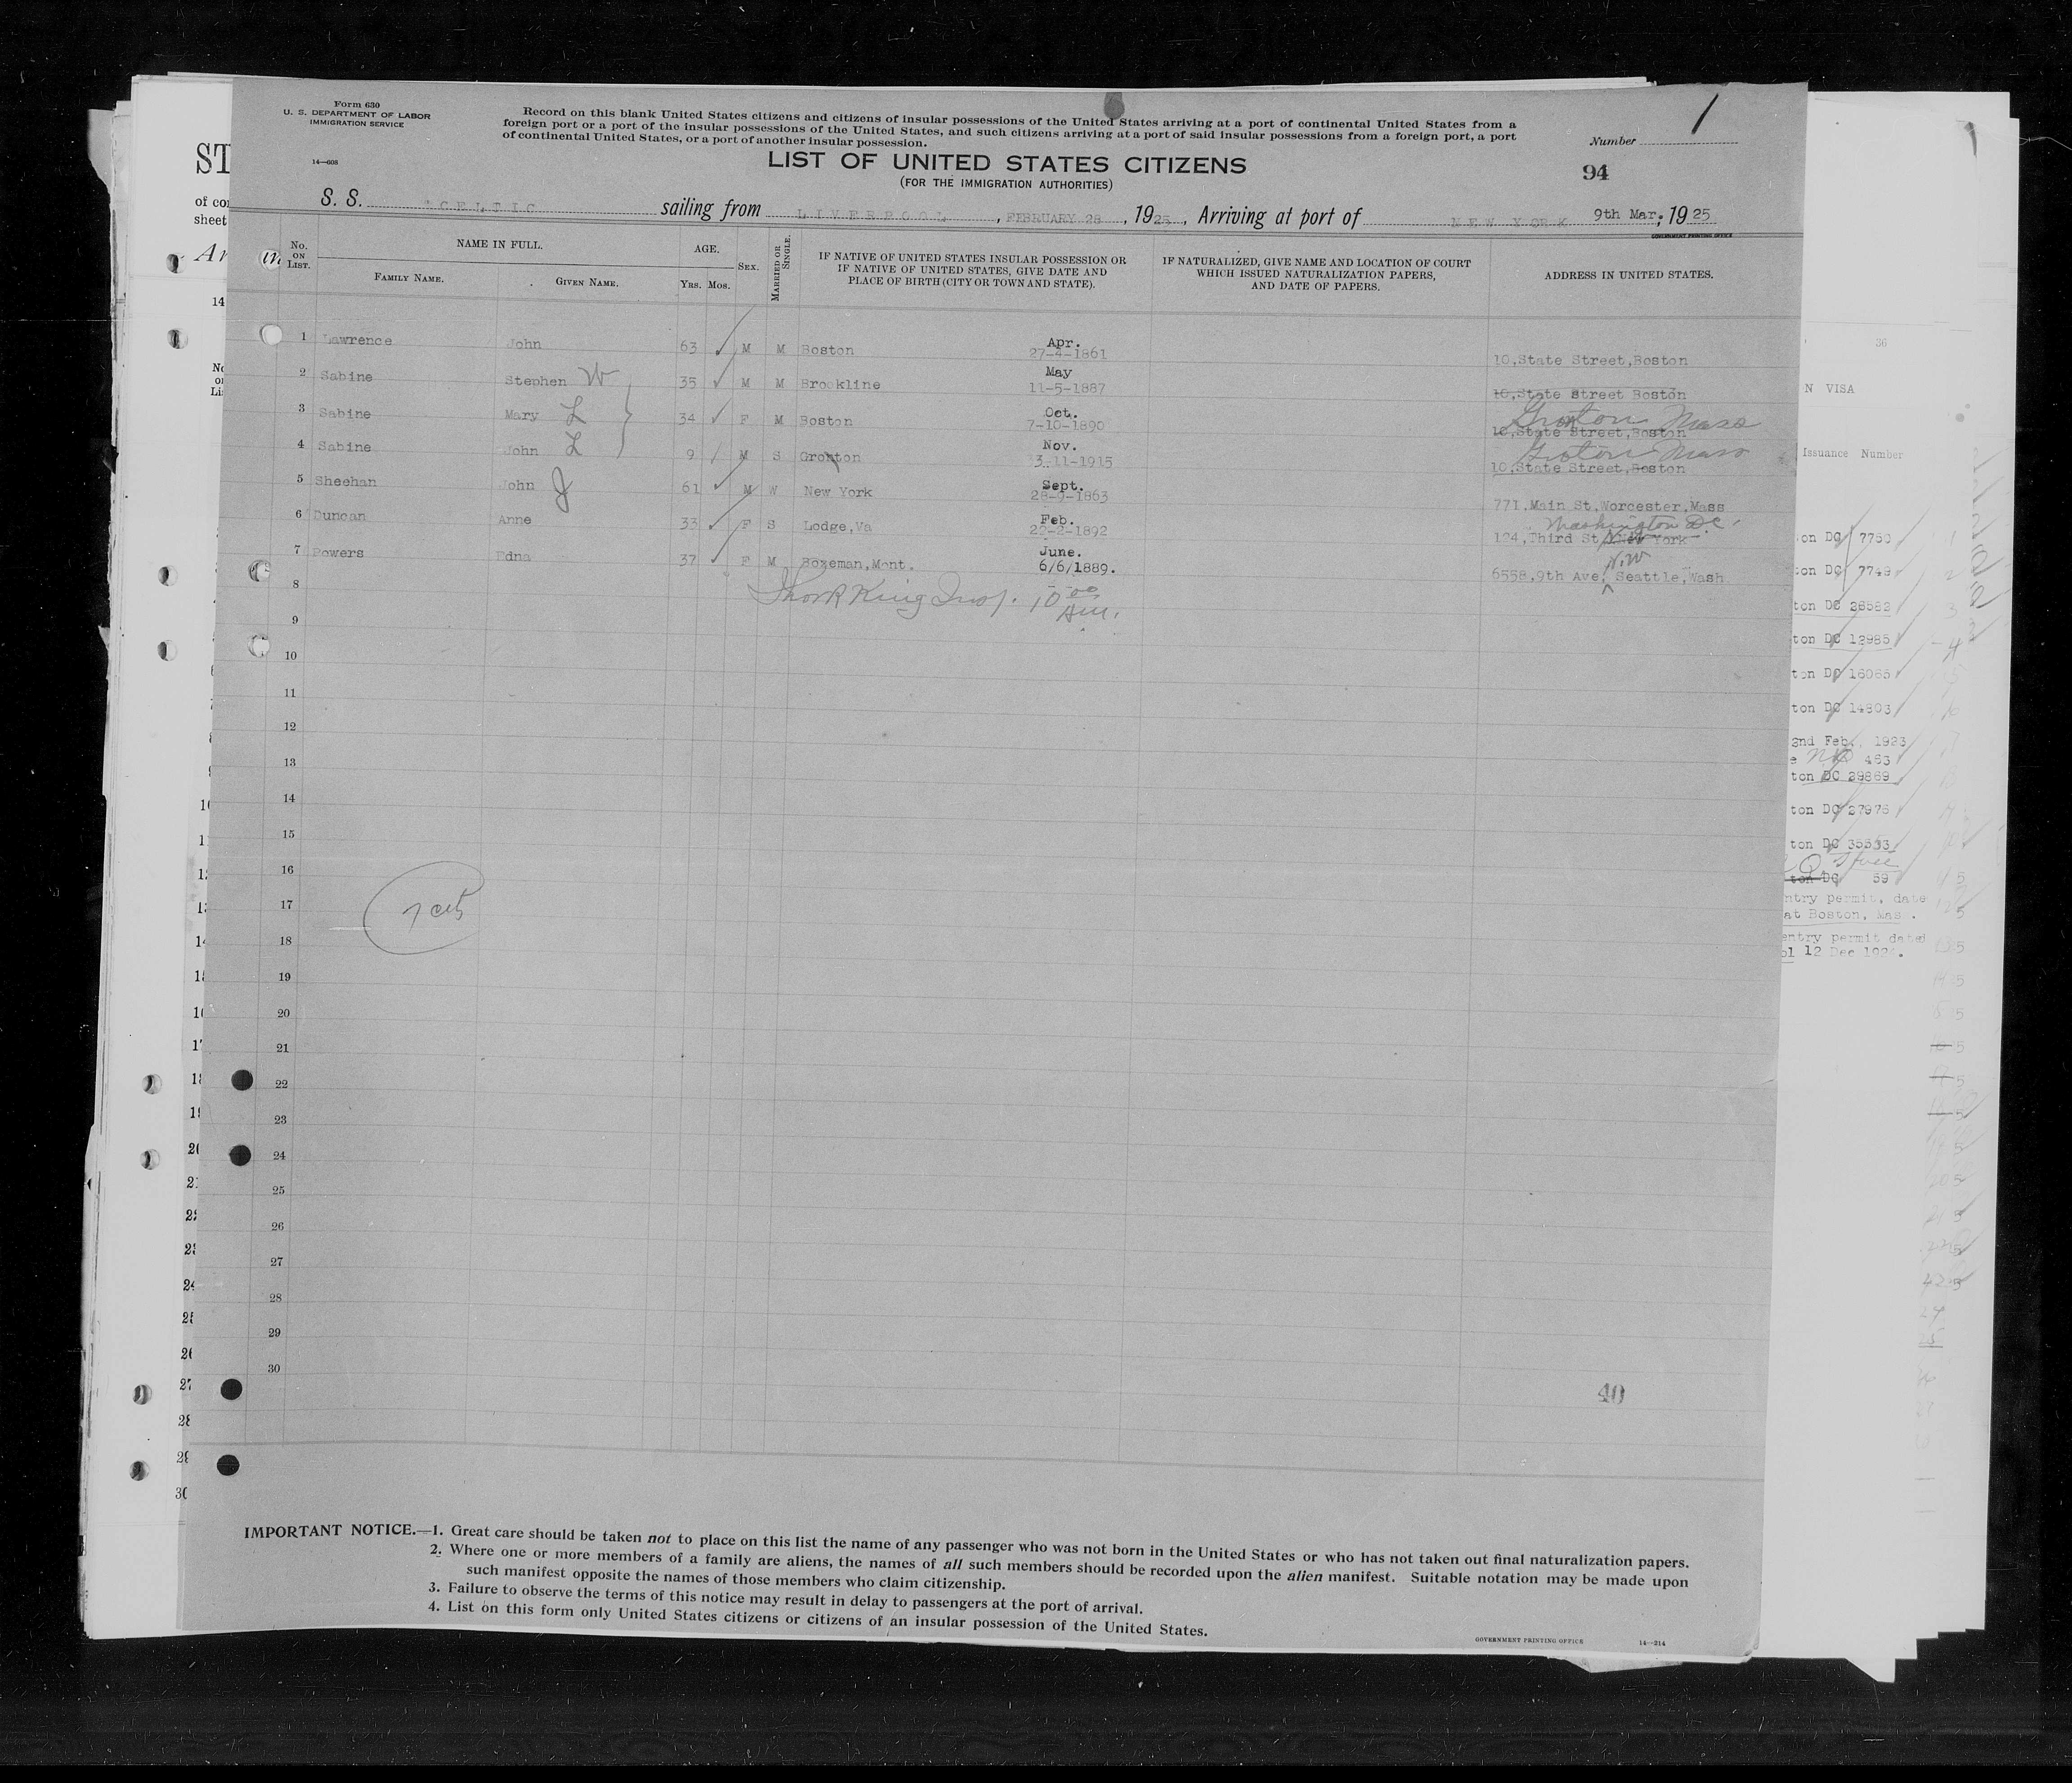 Form 630
U. S. DEPARTMENT OF LABOR
IMMIGRATION SERVICE
14—608
Record on this blank United States citizens and citizens of insular possessions of the United States arriving at a port of continental United States from a
foreign port or a port of the insular possessions of the United States, and such citizens arriving at a port of said insular possessions from a foreign port, a port
of continental United States, or a port of another insular possession.
1
Number
LIST OF UNITED STATES CITIZENS
(FOR THE IMMIGRATION AUTHORITIES)
94
S. S. "CELTIC sailing from LIVERPOOL, FEBRUARY 28, 1925, Arriving at port of NEW YORK 9th Mar; 1925
GOVERNMENT PRINTING OFFICE
No. ON LIST. NAME IN FULL. FAMILY NAME. GIVEN NAME. AGE. YRS. MOS. SEX. MARRIED OR SINGLE. IF NATIVE OF UNITED STATES INSULAR POSSESSION OR IF NATIVE OF UNITED STATES, GIVE DATE AND PLACE OF BIRTH (CITY OR TOWN AND STATE). IF NATURALIZED, GIVE NAME AND LOCATION OF COURT WHICH ISSUED NATURALIZATION PAPERS, AND DATE OF PAPERS. ADDRESS IN UNITED STATES.
1 Lawrence John 63 M M Boston Apr. 27-4-1861 10,State Street,Boston
2 Sabine Stephen W 35 M M Brookline May 11-5-1887 10,State Street Boston
Groton Mass
3 Sabine Mary L 34 F M Boston Oct. 7-10-1890 10,State Street,Boston
Groton Mass
4 Sabine John L 9 M S Groton Nov. 3-11-1915 10,State Street,Boston
5 Sheehan John J 61 M W New York Sept. 28-9-1863 771,Main St,Worcester,Mass
Washington DC.
6 Duncan Anne 33 F S Lodge,Va Feb. 22-2-1892 124,Third St, New York
N.W
7 Powers Edna 37 F M Bozeman,Mont. June. 6/6/1889. 6558,9th Ave, Seattle,Wash
8
King Insp. 10 00 Am.
9
10
11
12
13
14
15
16
17
18
19
20
21
22
23
24
25
26
27
28
29
30
40
IMPORTANT NOTICE.—1. Great care should be taken not to place on this list the name of any passenger who was not born in the United States or who has not taken out final naturalization papers.
2. Where one or more members of a family are aliens, the names of all such members should be recorded upon the alien manifest. Suitable notation may be made upon
such manifest opposite the names of those members who claim citizenship.
3. Failure to observe the terms of this notice may result in delay to passengers at the port of arrival.
4. List on this form only United States citizens or citizens of an insular possession of the United States.
GOVERNMENT PRINTING OFFICE 14—214
36
N VISA
Issuance Number
on DC 7750
ton DC 7749
ton DC 26582
ton DC 12985
ton DC 16065
ton DC 14803
2nd Feb., 1923
463
ton DC 29869
ton DC 27976
ton DC 35533
ton DC 59
ntry permit, date
at Boston, Mas .
entry permit dated
ol 12 Dec 192